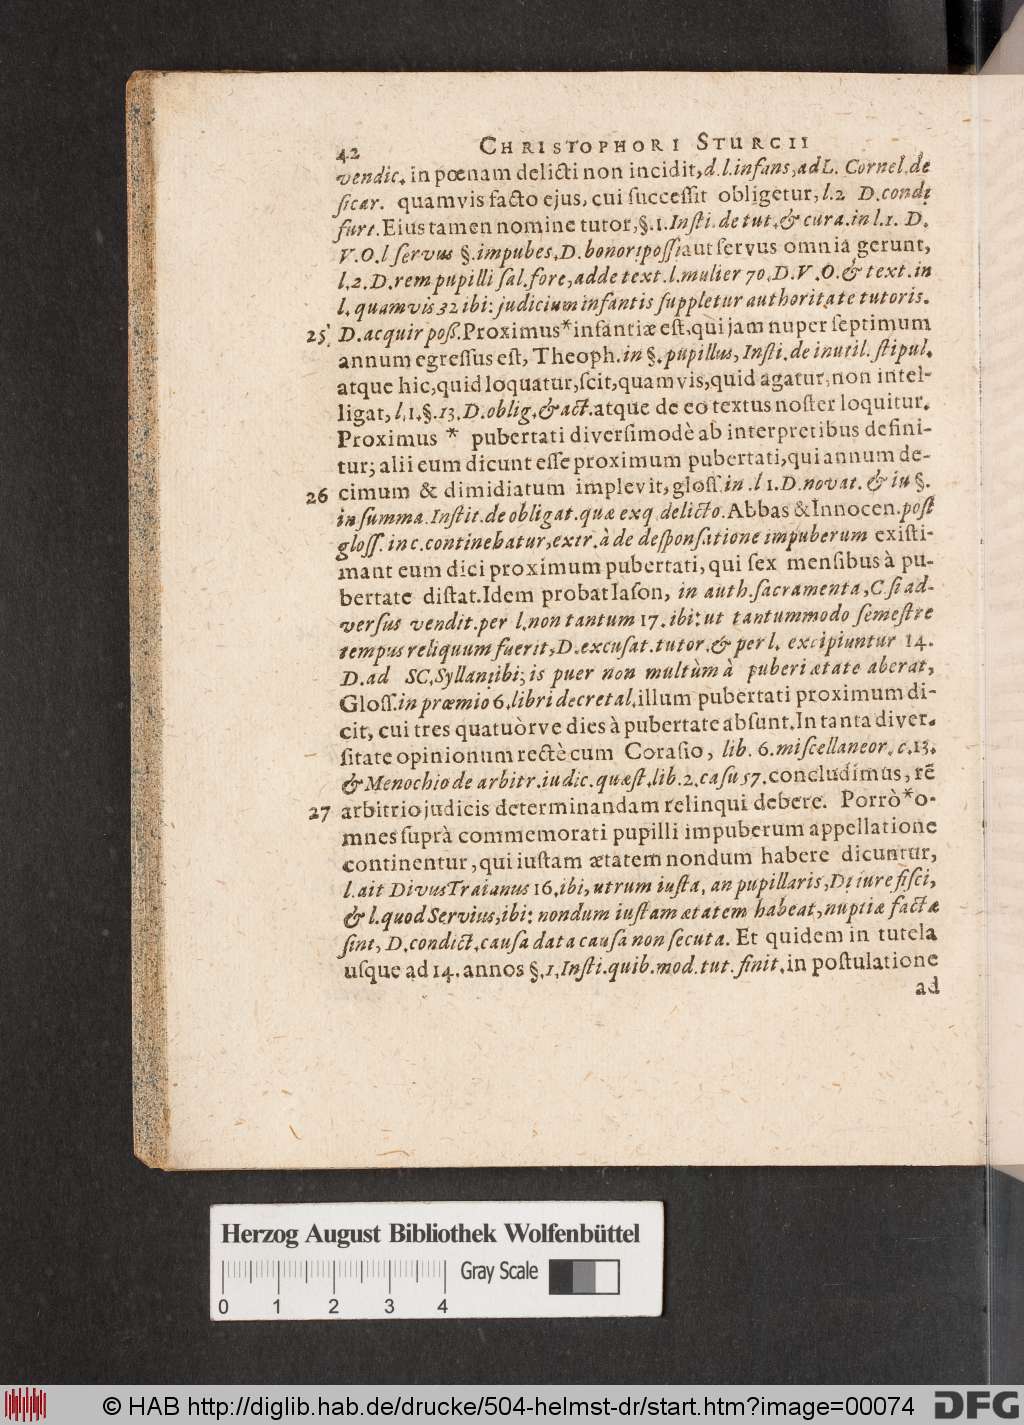 42 CHRISTOPHORI STURCII
vendic. in pœnam delicti non incidit, d. l. infans, ad L. Cornel. de
sicar. quamvis facto ejus, cui successit obligetur, l. 2 D. condi
furt. Eius tamen nomine tutor, §. 1. Insti. de tut. & cura. in l. 1. D.
V. O. l servus §. impubes, D. bonor: possi aut servus omnia gerunt,
l. 2. D. rem pupilli sal. fore, adde text. l. mulier 70. D. V. O. & text. in
l. quamvis 32 ibi: judicium infantis suppletur authoritate tutoris.
25 D. acquir poss. Proximus * infantiæ est, qui jam nuper septimum
annum egressus est, Theoph. in §. pupillus, Insti. de inutil. stipul.
atque hic, quid loquatur, scit, quamvis, quid agatur, non intel-
ligat, l. 1. §. 13. D. oblig. & act. atque de eo textus noster loquitur.
Proximus * pubertati diversimodè ab interpretibus defini-
tur; alii eum dicunt esse proximum pubertati, qui annum de-
26 cimum & dimidiatum implevit, gloss. in . l 1. D. novat. & iu §.
in summa. Instit. de obligat. quæ exq delicto. Abbas & Innocen. post
gloss. in c. continebatur, extr. à de desponsatione impuberum existi-
mant eum dici proximum pubertati, qui sex mensibus à pu-
bertate distat. Idem probat Iason, in auth. sacramenta, C si ad-
versus vendit. per l. non tantum 17. ibi: ut tantummodo semestre
tempus reliquum fuerit, D. excusat. tutor. & per l. excipiuntur 14.
D. ad SC. Syllani; ibi; is puer non multùm à puberi ætate aberat,
Gloss. in præmio 6. libri decretal. illum pubertati proximum di-
cit, cui tres quatuòrve dies à pubertate absunt. In tanta diver-
sitate opinionum rectè cum Corasio, lib. 6. miscellaneor. c. 13.
& Menochio de arbitr. iudic. quæst. lib. 2. casu 57. concludimus, rẽ
27 arbitrio judicis determinandam relinqui debere. Porrò * o-
mnes suprà commemorati pupilli impuberum appellatione
continentur, qui iustam ætatem nondum habere dicuntur,
l. ait Divus Traianus 16. ibi, utrum iusta, an pupillaris, D; iure fisci,
& l. quod Servius, ibi: nondum iustam ætatem habeat, nuptiæ factæ
sint, D. condict. causa data causa non secuta. Et quidem in tutela
usque ad 14. annos §. 1, Insti. quib. mod. tut. finit. in postulatione
ad
Herzog August Bibliothek Wolfenbüttel
Gray Scale
0 1 2 3 4
© HAB http://diglib.hab.de/drucke/504-helmst-dr/start.htm?image=00074
DFG